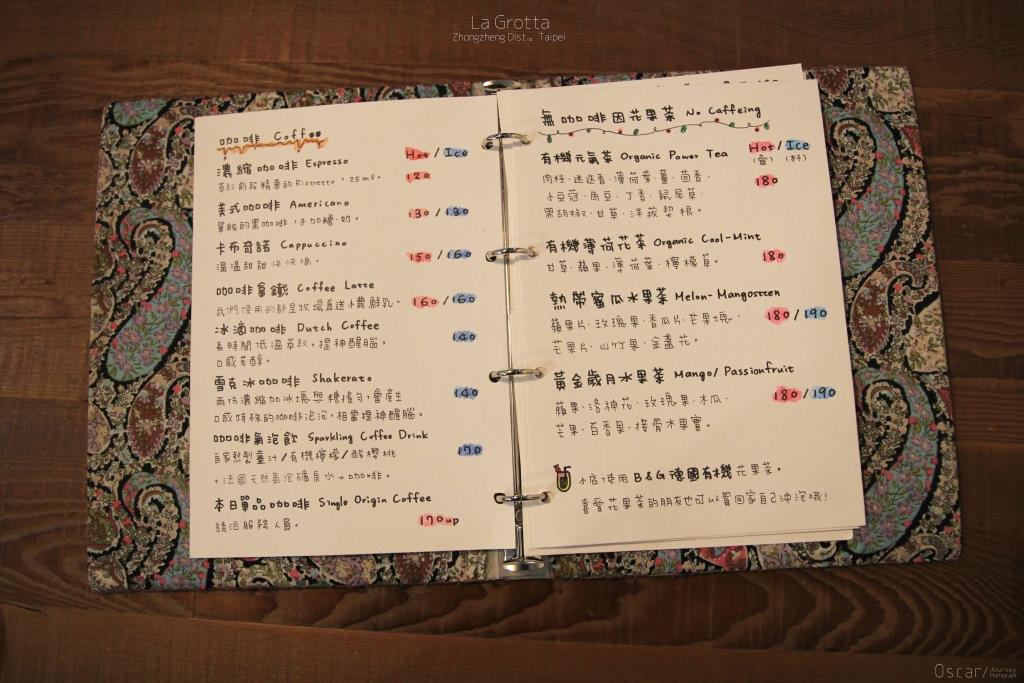 La Grotta
Zhongzheng Dist.。Taipei
咖啡 Coffee
Hot / Ice
濃縮咖啡 Espresso
120
萃取前段精華的 Ristretto。25ml。
美式咖啡 Americano
130 / 130
單純的黑咖啡,不加糖、奶。
卡布奇諾 Cappuccino
150 / 160
溫溫甜甜快快喝。
咖啡拿鐵 Coffee Latte
我們使用的都是牧場直送小農鮮乳。 160 / 160
冰滴咖啡 Dutch Coffee
長時間低溫萃取,提神醒腦, 140
口感芳醇。
雪克冰咖啡 Shakerato
兩份濃縮加冰塊與糖搖勻,會產生 140
口感特殊的咖啡泡泡,相當提神醒腦。
咖啡氣泡飲 Sparkling Coffee Drink
自家熬製薑汁/有機檸檬/酸櫻桃 170
+法國天然氣泡礦泉水+咖啡。
本日單品咖啡 Single Origin Coffee
請洽服務人員。 170up
無咖啡因花果茶 No Caffeing
Hot / Ice
有機元氣茶 Organic Power Tea
(壺) (杯)
肉桂·迷迭香·薄荷葉·薑·茴香· 180
小豆蔻·馬豆·丁香·鼠尾草·
黑胡椒·甘草·洋菝契根。
有機薄荷花茶 Organic Cool-Mint
甘草·蘋果·薄荷葉·檸檬草。 180
熱帶蜜瓜水果茶 Melon-Mangostten
蘋果片·玫瑰果·香瓜片·芒果塊· 180 / 190
芒果片·山竹果·金盞花。
黃金歲月水果茶 Mango/ Passionfruit
蘋果·洛神花·玫瑰果·木瓜· 180 / 190
芒果·百香果·接骨木果實。
本店使用 B&G 德國有機花果茶。
喜愛花果茶的朋友也可以買回家自己沖泡哦!
Oscar/ Journey
Photograph